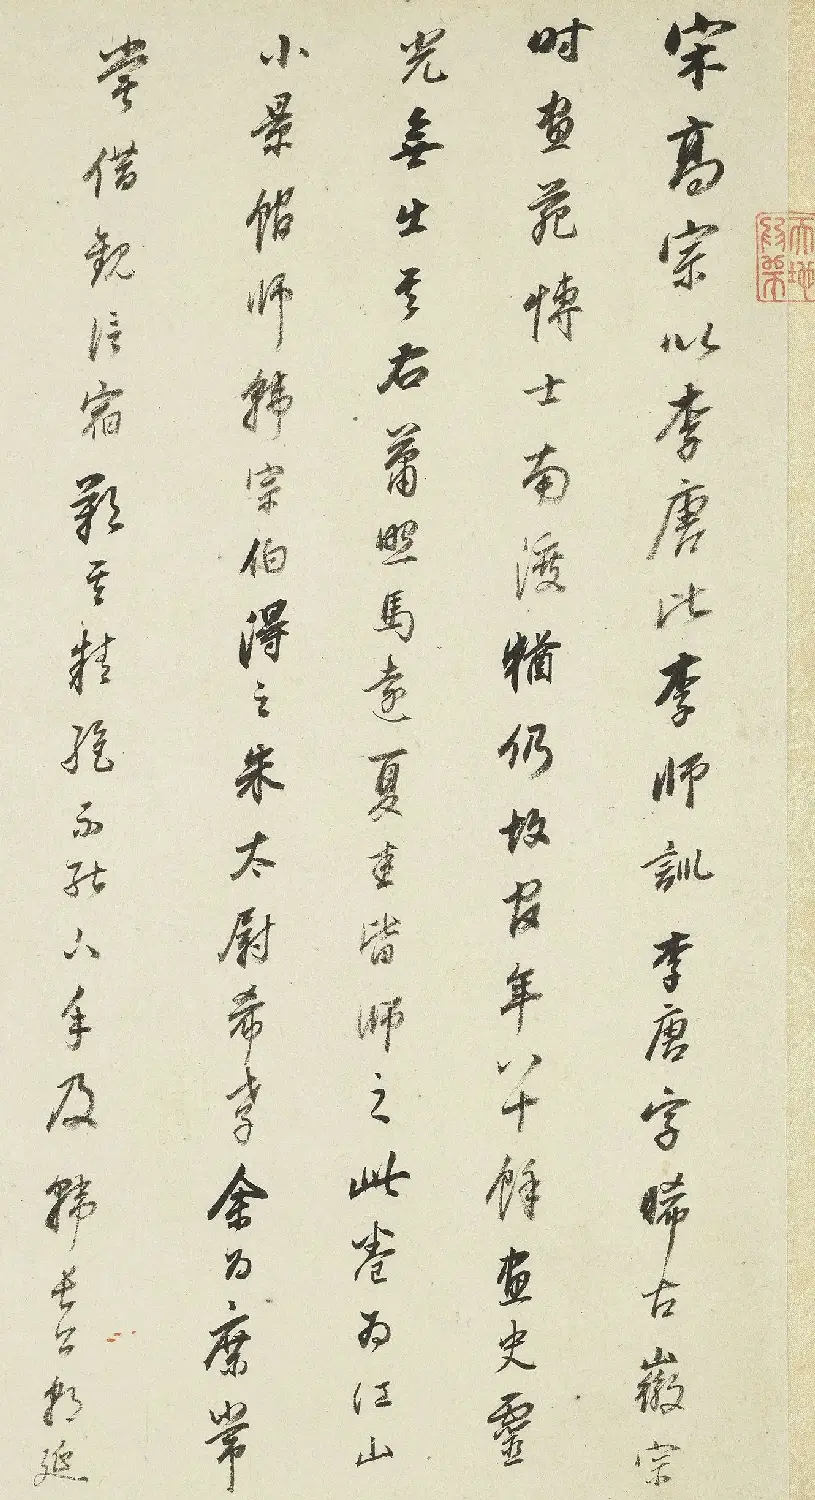 宋高宗以李唐比李師訓李唐字晞古徽宗
時畫苑博士南渡猶仍故官年八十餘畫史靈
光無出其右蕭照馬遠夏圭皆師之此卷為江山
小景館師韓宗伯得之朱太尉希孝余為庶常
嘗借觀信宿歎其精絕不能去手及韓長公朝延